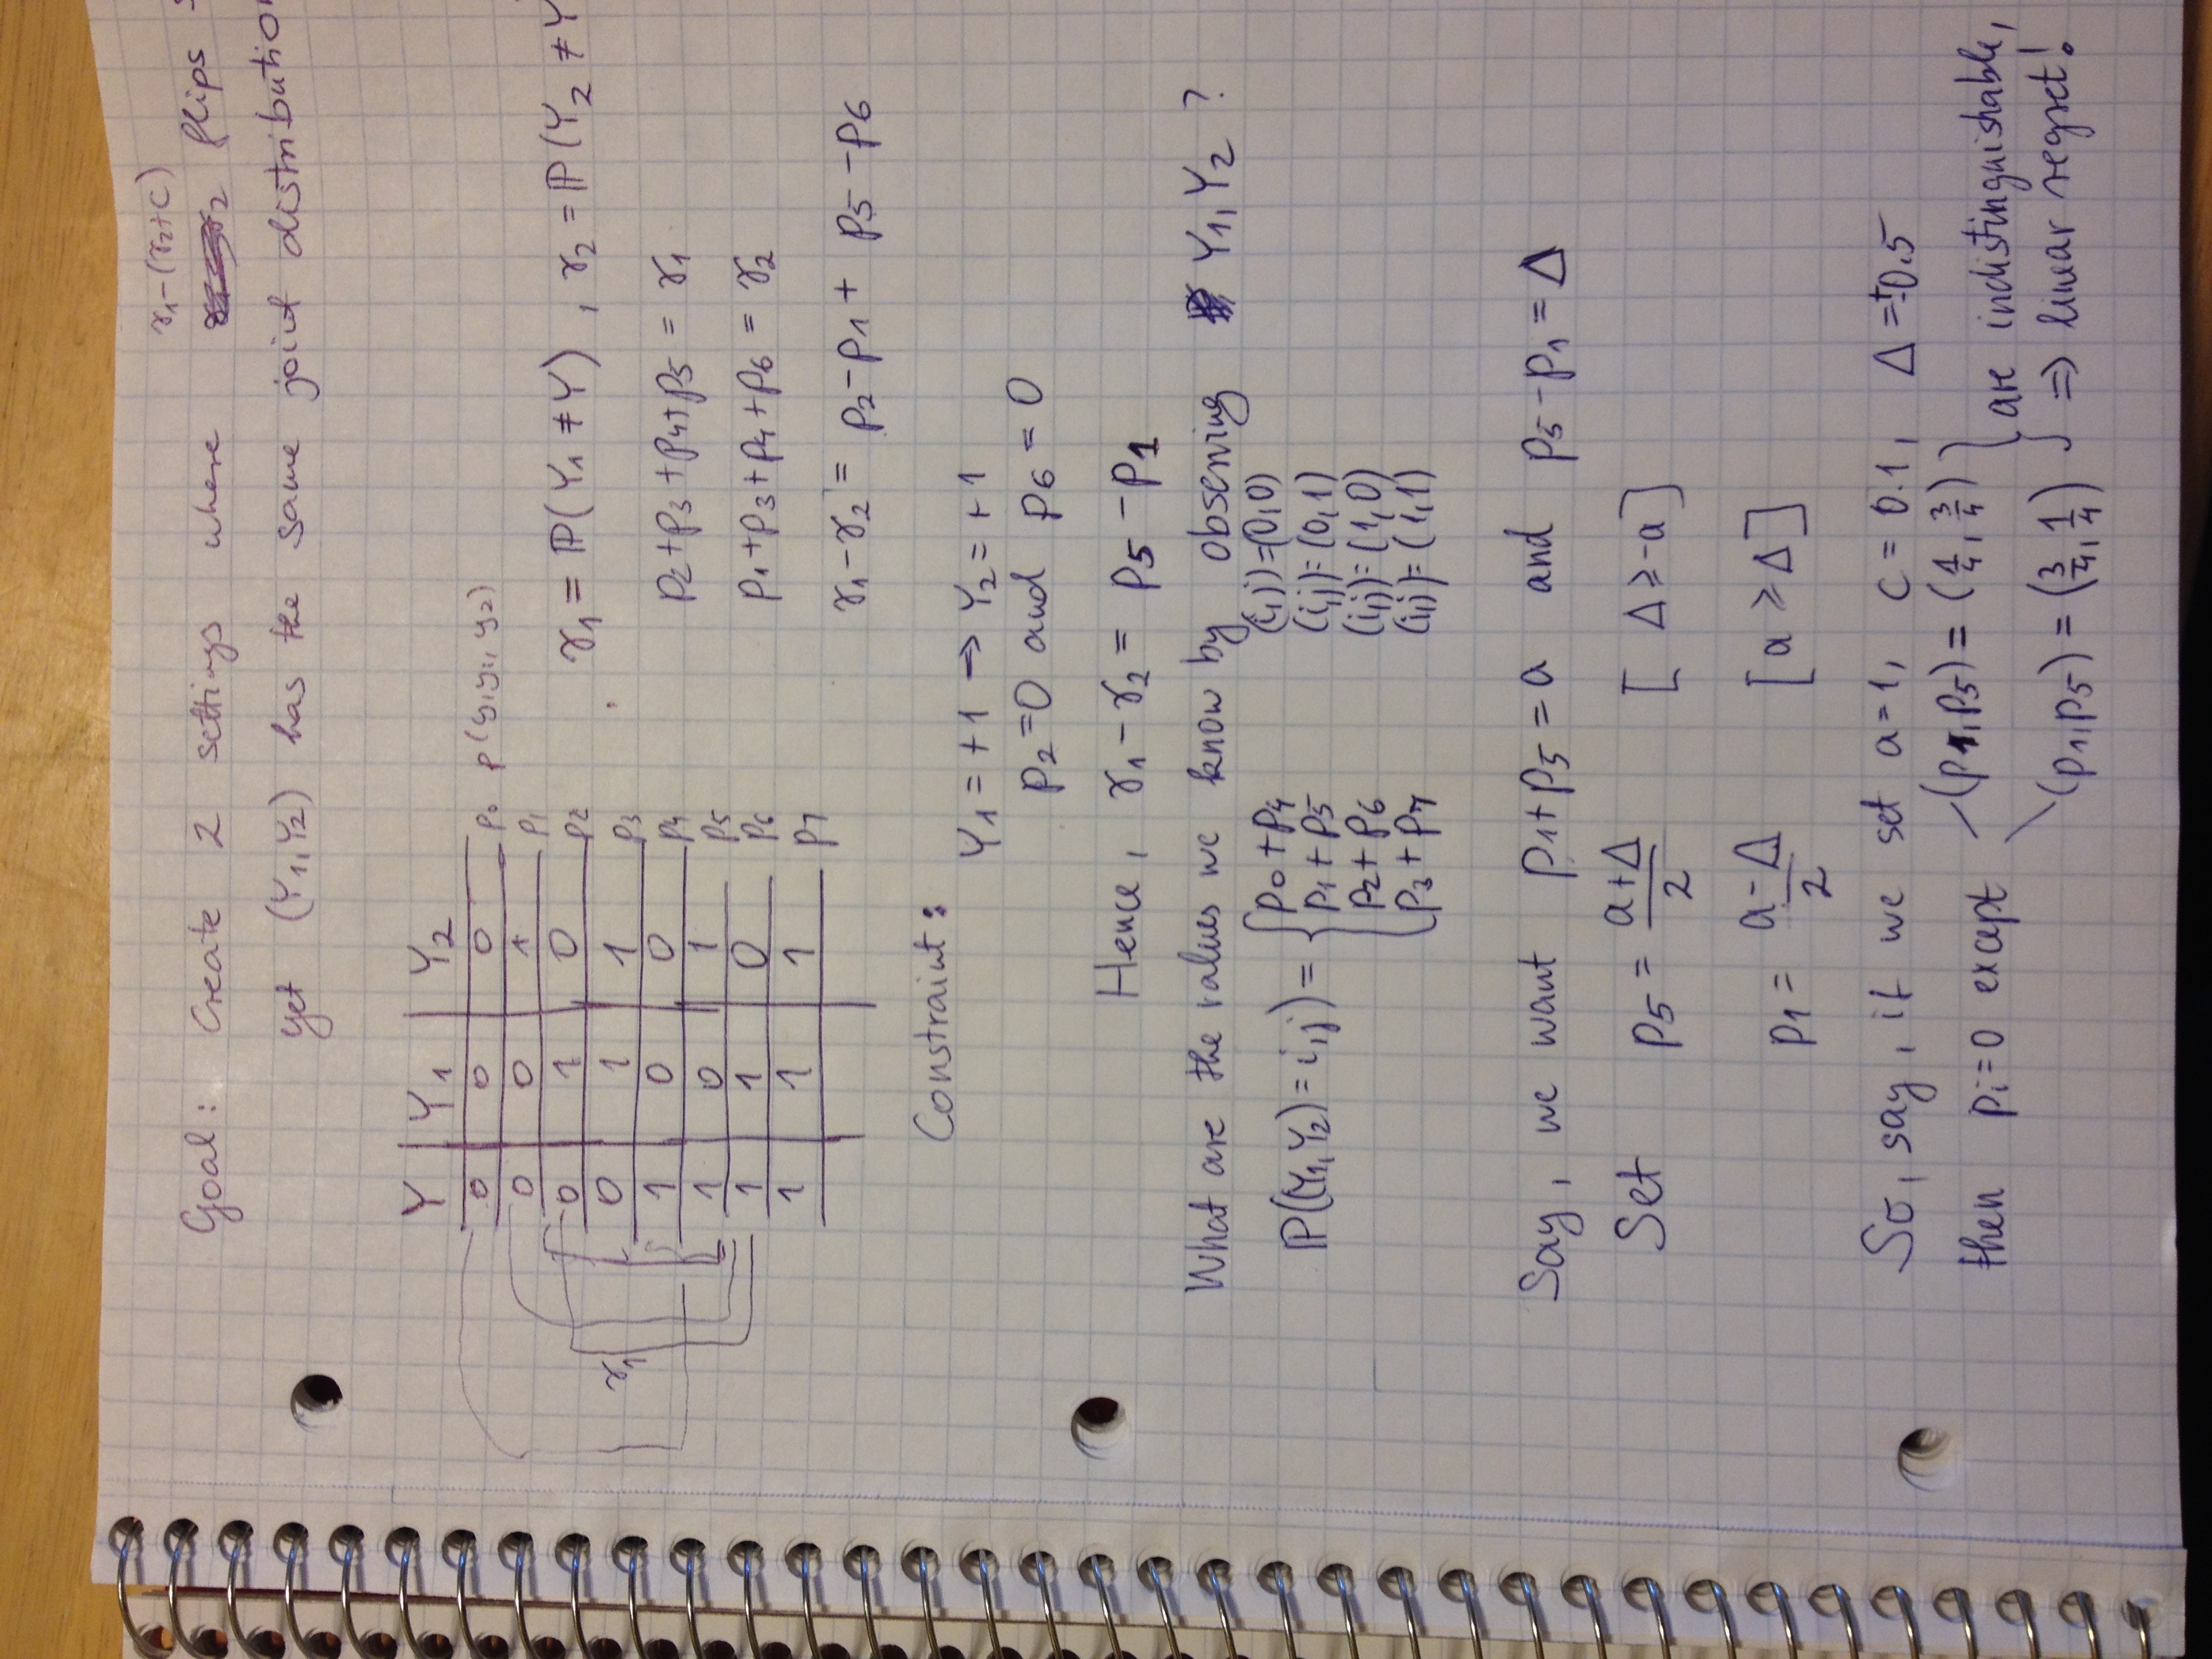 γ1-(γ2+c)
Goal: Create 2 settings where flips
yet (Y1,Y2) has the same joint distribution
Y Y1 Y2
0 0 0 p0 p(y,y1,y2)
0 0 1 p1
0 1 0 p2
0 1 1 p3
1 0 0 p4
1 0 1 p5
1 1 0 p6
1 1 1 p7
γ1
γ1 = ℙ(Y1≠Y), γ2 = ℙ(Y2≠Y
p2+p3+p4+p5 = γ1
p1+p3+p4+p6 = γ2
γ1-γ2 = p2-p1+ p5-p6
Constraint:
Y1=+1 → Y2=+1
p2=0 and p6=0
Hence, γ1-γ2 = p5-p1
What are the values we know by observing Y1,Y2?
ℙ((Y1,Y2)=i,j) = {
p0+p4 (i,j)=(0,0)
p1+p5 (i,j)=(0,1)
p2+p6 (i,j)=(1,0)
p3+p7 (i,j)=(1,1)
Say, we want p1+p5=a and p5-p1=Δ
Set p5 = (a+Δ)/2 [Δ≥-a]
p1 = (a-Δ)/2 [a≥Δ]
So, say, if we set a=1, c=0.1, Δ=±0.5
then pi=0 except (p1,p5)=(1/4,3/4) } are indistinguishable,
(p1,p5)=(3/4,1/4) ⇒ linear regret!